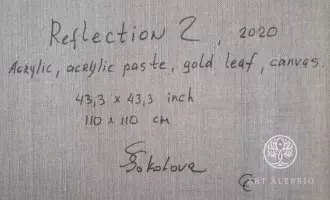 Reflection 2, 2020
Acrylic, acrylic paste, gold leaf, canvas
43,3 x 43,3 inch
110 x 110 cm
Sokolova
ART ALEPPIO